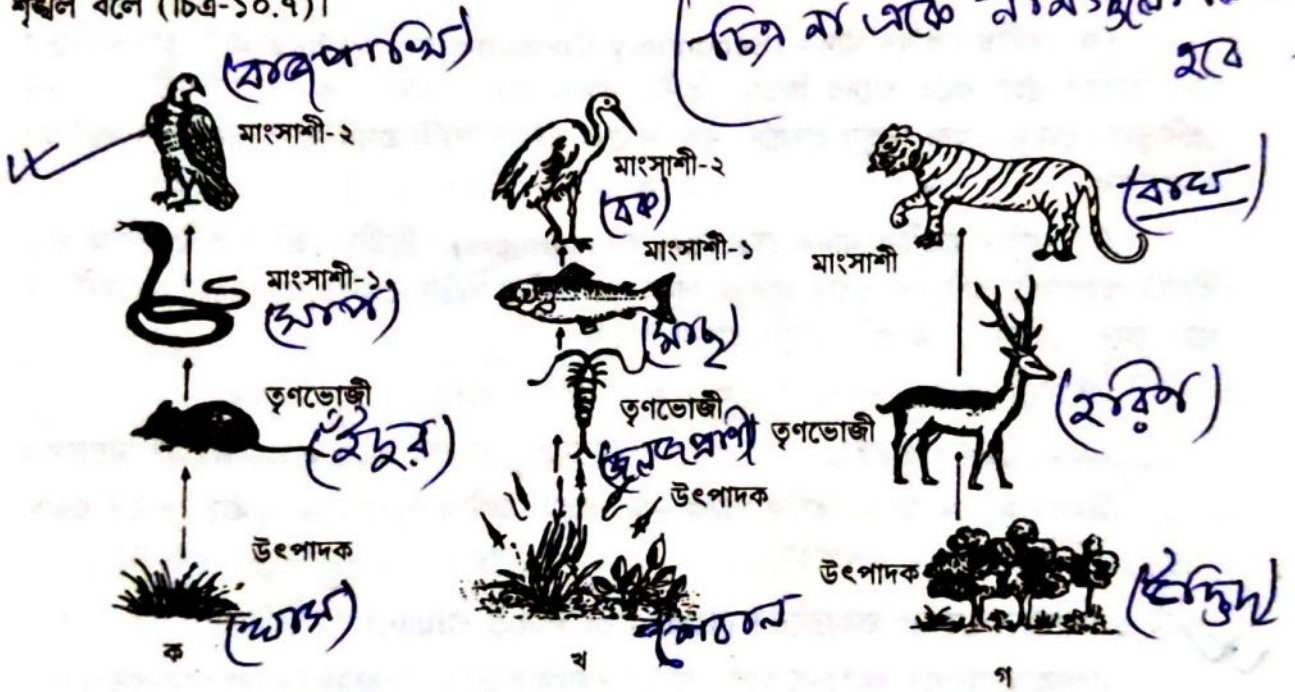 শৃঙ্খল বলে (চিত্র-১০.৭)।
চিত্র না একে
হবে
(বাজপাখি)
মাংসাশী-২
মাংসাশী-১
(সাপ)
তৃণভোজী
(ইঁদুর)
উৎপাদক
(ঘাস)
ক
মাংসাশী-২
(বক)
মাংসাশী-১
(মাছ)
তৃণভোজী
(জলজপ্রাণী)
উৎপাদক
শৈবাল
খ
(বাঘ)
মাংসাশী
তৃণভোজী
(হরিণ)
উৎপাদক
(উদ্ভিদ)
গ